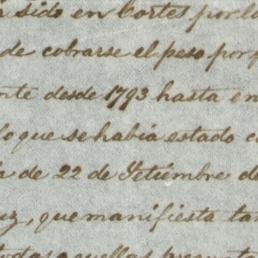 sido en Cortes por lo
de cobrarse el peso por
desde 1793 hasta en
lo que se había estado
de 22 de Setiembre de
que manifiesta